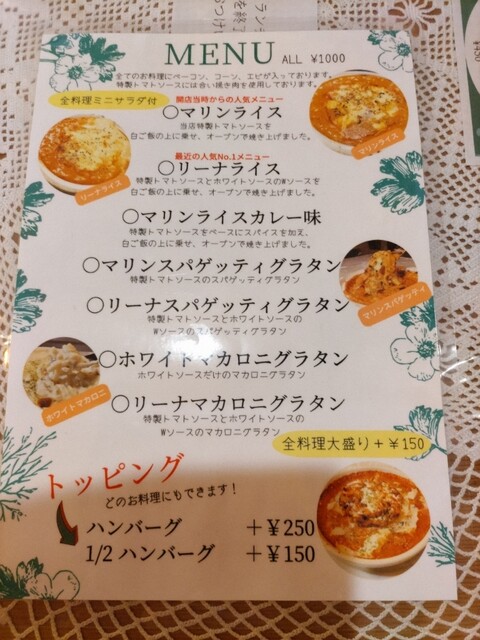 MENU ALL ¥1000
全てのお料理にベーコン、コーン、エビが入っております。
特製トマトソースには合い挽き肉を使用しております。
全料理ミニサラダ付
開店当時からの人気メニュー
〇マリンライス
当店特製トマトソースを
白ご飯の上に乗せ、オーブンで焼き上げました。
マリンライス
最近の人気No.1メニュー
〇リーナライス
特製トマトソースとホワイトソースのWソースを
白ご飯の上に乗せ、オーブンで焼き上げました。
リーナライス
〇マリンライスカレー味
特製トマトソースをベースにスパイスを加え、
白ご飯の上に乗せ、オーブンで焼き上げました。
〇マリンスパゲッティグラタン
特製トマトソースのスパゲッティグラタン
マリンスパゲッティ
〇リーナスパゲッティグラタン
特製トマトソースとホワイトソースの
Wソースのスパゲッティグラタン
〇ホワイトマカロニグラタン
ホワイトソースだけのマカロニグラタン
ホワイトマカロニ
〇リーナマカロニグラタン
特製トマトソースとホワイトソースの
Wソースのマカロニグラタン
全料理大盛り+¥150
トッピング
どのお料理にもできます!
ハンバーグ +¥250
1/2 ハンバーグ +¥150